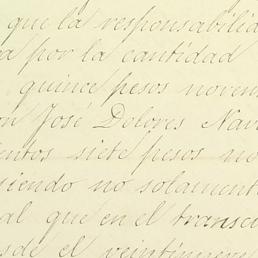 que la responsabilida
a por la cantidad
quince pesos noven
on José Dolores Nava
entos siete pesos no
siendo no solamente
al que en el transcu
sde el veintinueve